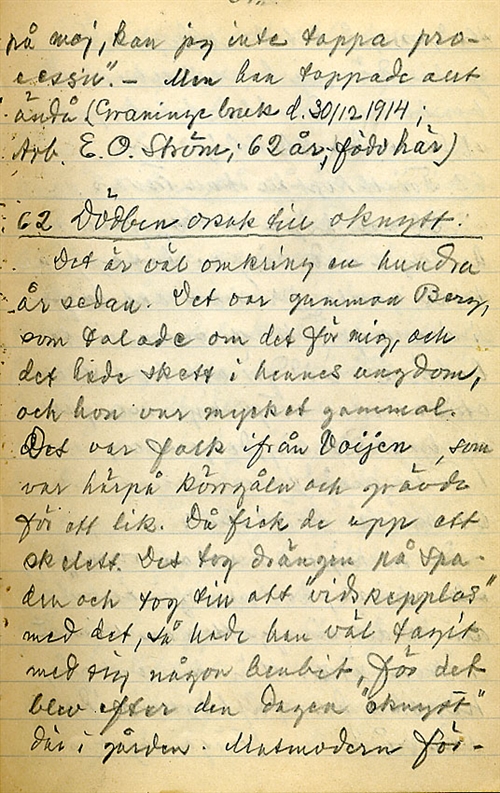 på mej, kan jag inte tappa pro-
cessn". – Men han tappade allt
ändå (Graninge bruk d. 30/12 1914;
Arb. E. O. Ström; 62 år; född här)
62 Dödben orsak till oknytt.
Det är väl omkring en hundra
år sedan. Det var gumman Berg,
som talade om det för mig, och
det hade skett i hennes ungdom,
och hon var mycket gammal.
Det var folk ifrån Voijen, som
var härpå körrgåln och grävde
för ett lik. Då fick de upp ett
skelett. Det tog drängen på spa-
den och tog till att "vidskepplas"
med det, så hade han väl tagit
med sig någon benbit, för det
blev efter den dagen "oknytt"
där i gården. Matmodern för-